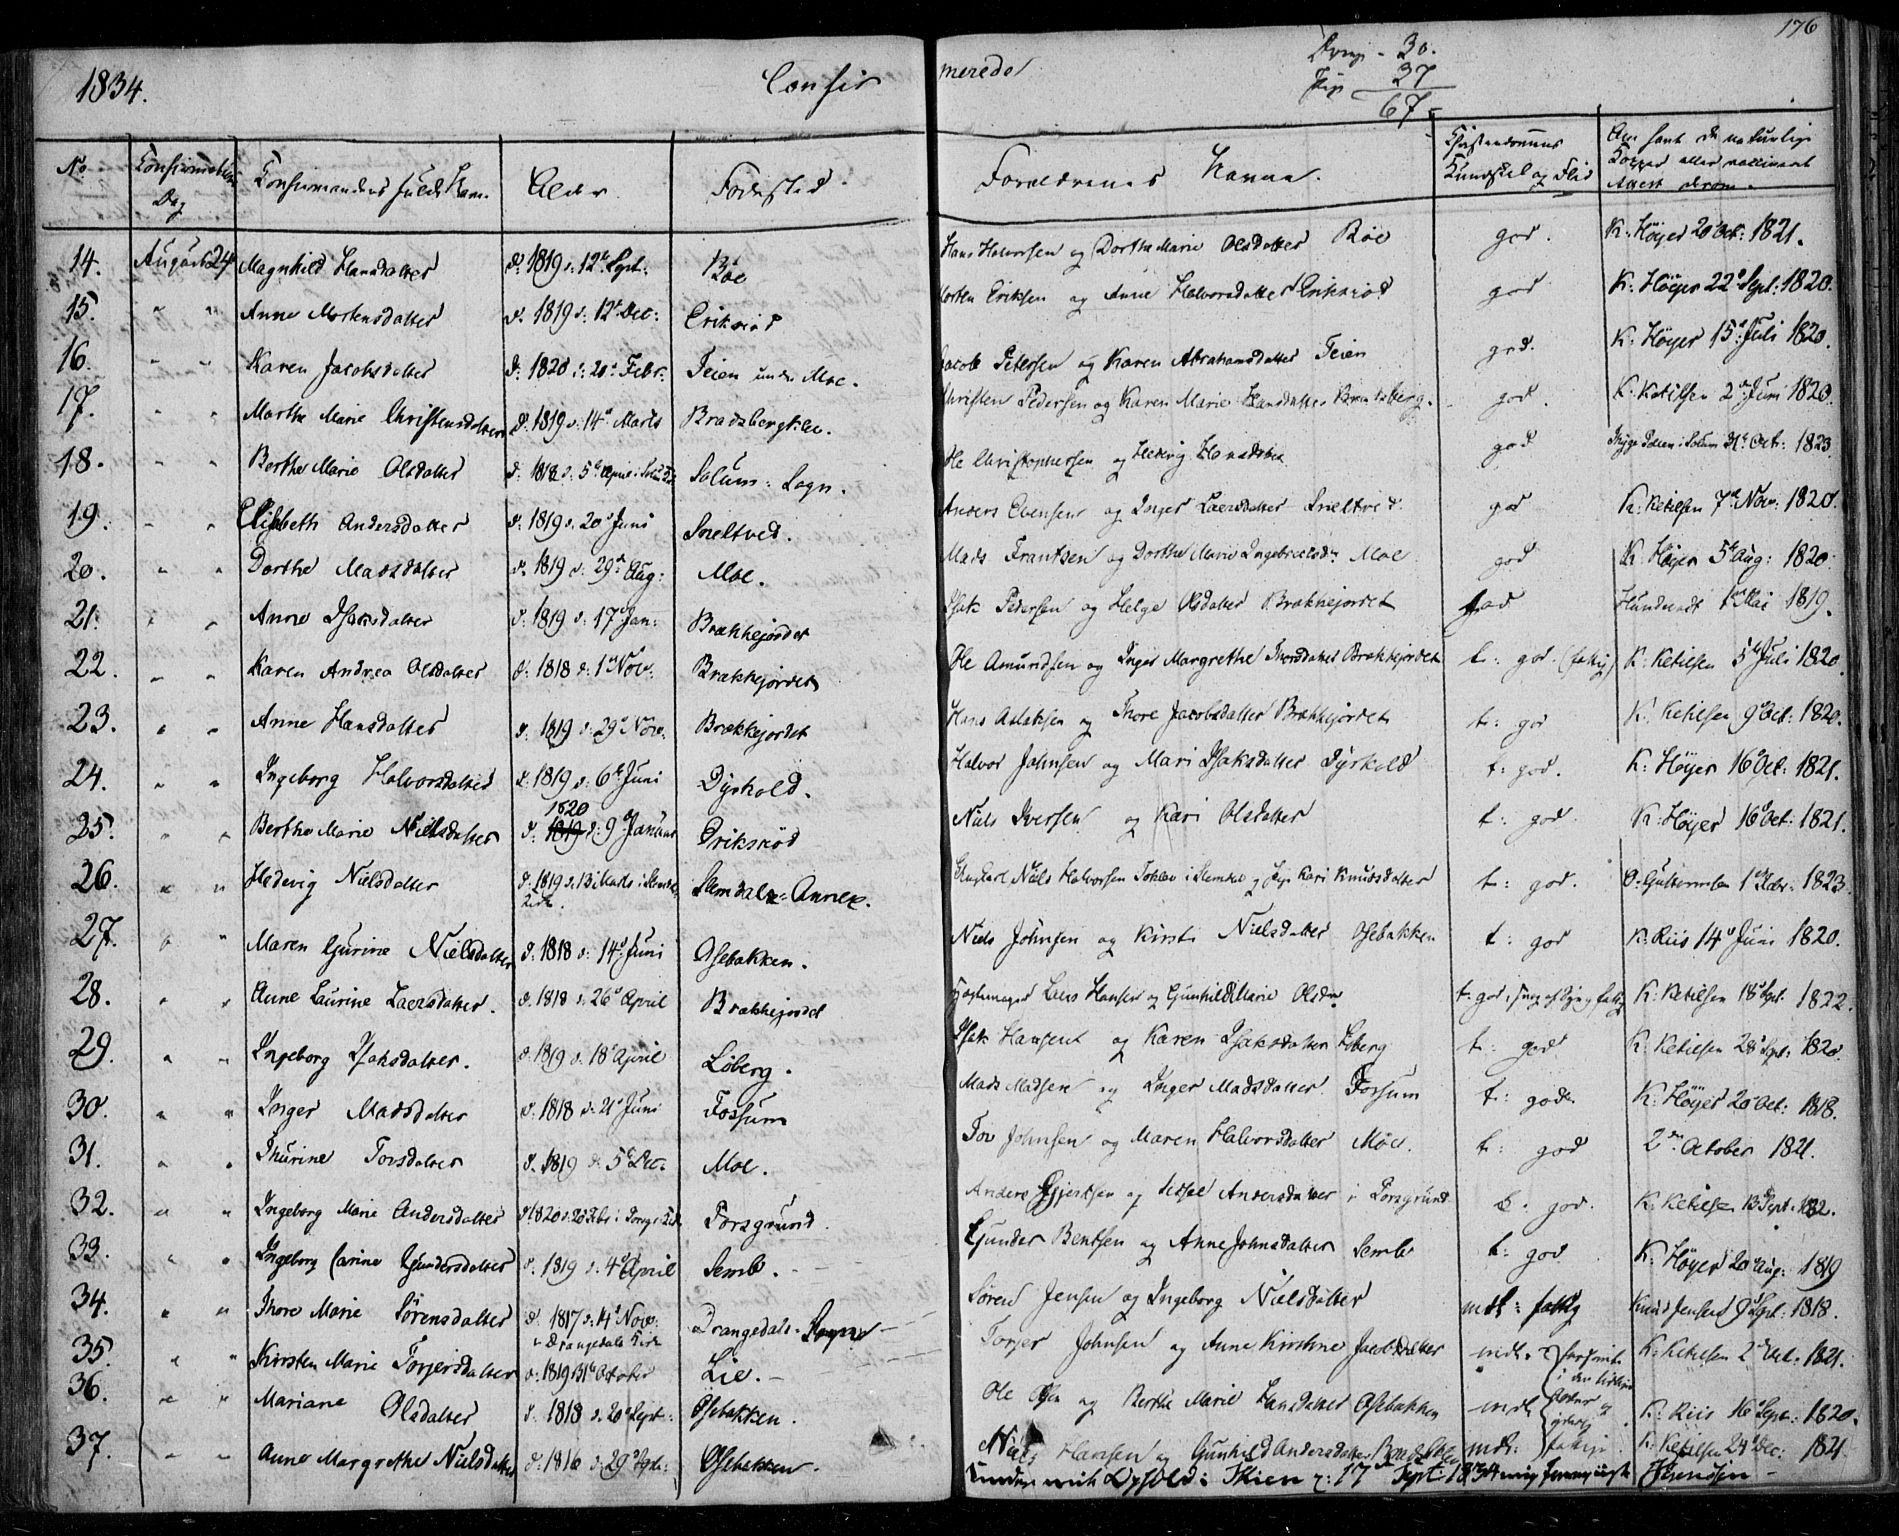 176
1834. Confirmerede
Drenge - 30.
Pige 37
67
No Confirmations Dag Confirmandens fulde Navn. Alder Fødested. Forældrenes Navne. Christendoms Kundskab og Flid Om havt de naturlige Kopper eller vaccineret Attest derom.
14. August 24 Magnhild Hansdatter d: 1819 d: 12t Sept: Böe Hans Halvorsen og Dorthe Marie Olsdatter Böe god. K. Höyer 20 Oct: 1821.
15. " " Anne Mortensdatter d. 1819 d: 12t Dec: Eriksröd Morten Eriksen og Anne Halvorsdatter Eriksröd god K. Höyer 22d Sept: 1820.
16. " " Karen Jacobsdatter d: 1820 d: 20d Febr: Feien under Moe. Jacob Petersen og Karen Abrahamsdatter Feien god. K. Höyer 15d Juli 1820.
17. " " Marthe Marie Christensdatter d: 1819 d: 14d Marts Bradsbergklev. Christen Pedersen og Karen Marie Hansdatter Bradsberg. god. K. Ketilsen 2den Juni 1820.
18. " " Berthe Marie Olsdatter d: 1818 d: 5te April i Solum K. Solum Sogn. Ole Christophersen og Hedevig Hansdatter god Solum 31te Oct: 1823.
19. " " Elisabeth Andersdatter d: 1819 d: 20d Juni Sneltved. Anders Evensen og Inger Laersdatter Sneltved god K. Ketilsen 7de Nov: 1820.
20. " " Dorthe Madsdatter d. 1819 d: 29de Aug: Moe. Mads Frantsen og Dorthe Marie Ingebretsdr Moe god K. Höyer 5te Aug: 1820.
21. " " Anne Isaksdatter d: 1819 d: 17d Jan: Brækkejordet Isak Pedersen og Helge Olsdatter Brækkejordet god Hundvadt 1ste Mai 1819.
22. " " Karen Andrea Olsdatter d: 1818 d: 1st Nov: Brækkejordet Ole Amundsen og Inger Margrethe Thorsdatter Brækkejordet t: god. (fattig) K: Ketilsen 5te Juli 1820.
23. " " Anne Hansdatter d: 1819 d: 29d Nov: Brækkejordet Hans Aslaksen og Thore Jacobsdatter Brækkejordet t: god K. Ketilsen 9d Oct: 1820.
24. " " Ingeborg Halvorsdatter d: 1819 d: 6te Juni Dyrkold. Halvor Johnsen og Mari Isaksdatter Dyrkold t: god. K: Höyer 16d Oct: 1821.
25. " " Berthe Marie Nielsdatter d: 1819 1820 d: 9d Januar Eriksröd Niels Iversen og Kari Olsdatter t: god. K: Höyer 16d Oct: 1821.
26. " " Hedevig Nielsdatter d: 1819 d. 13 Marts i Slemdals Kirke. Slemdals Annex. Ungkarl Niels Halvorsen og Pige Kari Knudsdatter t: god. 1823.
27. " " Maren Gurine Nielsdatter d: 1818 d: 14d Juni Osebakken. Niels Johnsen og Kirsti Nielsdatter Osebakken t: god K. Riis 14d Juni 1820.
28. " " Anne Laurine Laersdatter. d: 1818 d: 26d April Brækkejordet Laers Hansen og Gunhild Marie Olsdr t: god, K: Ketilsen 18d Sept: 1822.
29. " " Ingeborg Isaksdatter. d: 1819 d. 18d April Löberg. Isak Hansen og Karen Isaksdatter Löberg t: god K: Ketilsen 28d Sept: 1820.
30. " " Inger Madsdatter d: 1818 d: 21d Juni Fossum Mads Madsen og Inger Madsdatter Fossum t: god. K: Höyer 20 Oct: 1818.
31. " " Thurine Torsdatter d. 1819 d. 5te Dec: Moe. Tov Johnsen og Maren Halvorsdatter Moe. t: god 2den October 1821.
32. " " Ingeborg Marie Andersdatter d: 1820 d: 20 Febr: i Porsgr: Kirke Porsgrund. Anders Gjertsen og Sidsel Andersdatter i Porsgrund t: god. K: Ketilsen 13 Sept: 1822.
33. " " Ingeborg Carine Gundersdatter d. 1819 d: 4d April Semb. Gunder Bentsen og Anne Johnsdatter Semb t: god K: Höyer 20d Aug: 1819
34. " " Thore Marie Sörensdatter d. 1817 d: 14d Nov: i Drangedals Kirke Drangedals Sogn Sören Jensen og Ingeborg Nielsdatter mdl: fattig Knud Jensen Sept: 1818.
35. " " Kirsten Marie Torjersdatter d: 1819 31te October Lie. Torjer Johnsen og Anne Kirstine Jacobsdatter mdl. K: Ketilsen 2d Oct: 1821.
36. " " Mariane Olsdatter d. 1818 d. 20d Sept: Osebakken. Ole Olsen og Berthe Marie Hansdatter Osebakken mdl K: Riis 16d Sept: 1820.
37. " " Anne Margrethe Nielsdatter d: 1816 d: 29d Sept: Osebakken. Niels Hansen og Gunhild Andersdatter mdl: fattig. K: Ketilsen 24d Dec: 1821.
Skien d: 17 Sept: 1834